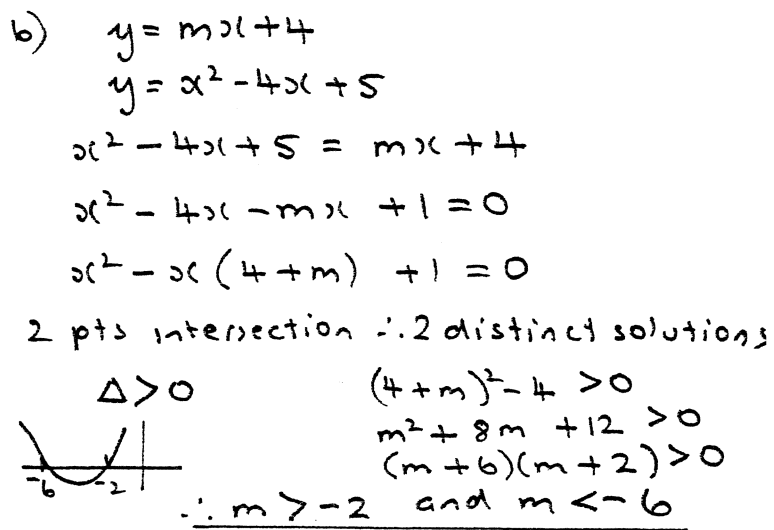 b) y = mx + 4
y = x² - 4x + 5
x² - 4x + 5 = mx + 4
x² - 4x - mx + 1 = 0
x² - x (4 + m) + 1 = 0
2 pts intersection ∴ 2 distinct solutions
Δ > 0 (4 + m)² - 4 > 0
m² + 8m + 12 > 0
(m + 6)(m + 2) > 0
-6 -2
∴ m > -2 and m < -6